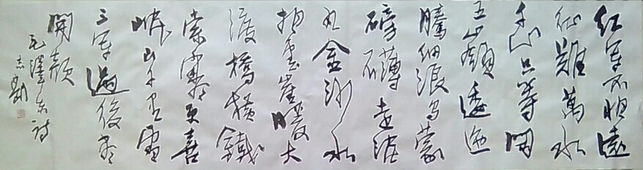 红军不怕远
征难万水
千山只等闲
五岭逶迤
腾细浪乌蒙
磅礴走泥
丸金沙水
拍云崖暖大
渡桥横铁
索寒更喜
岷山千里雪
三军过后尽
开颜
毛泽东诗
志刚